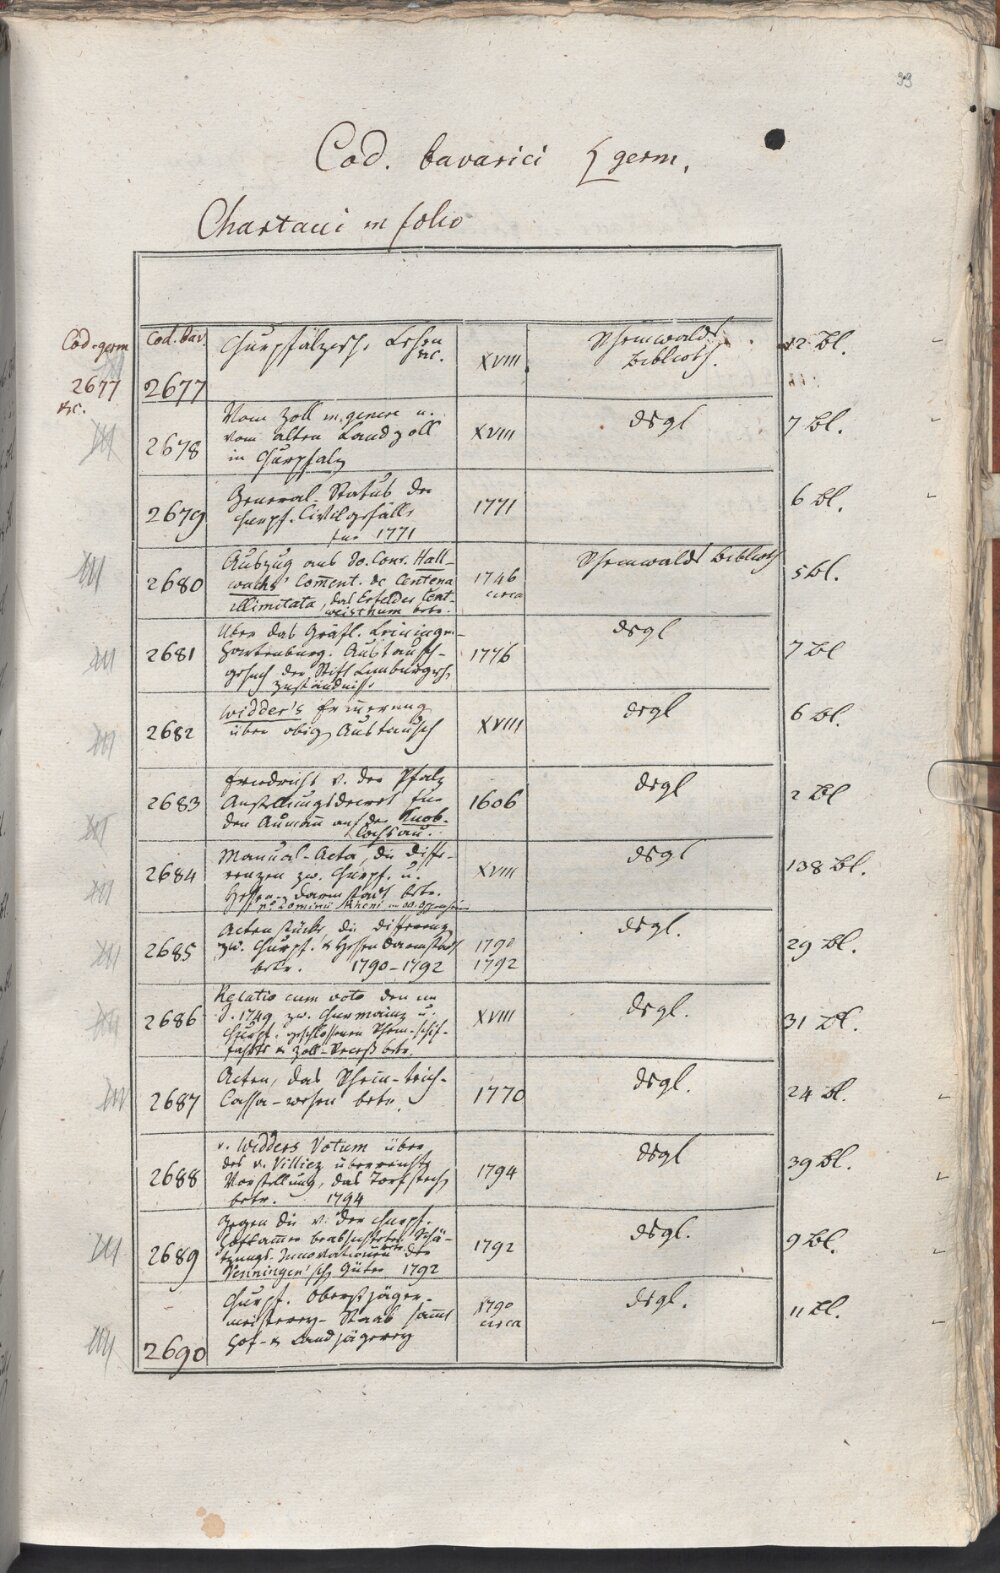 99
Cod. bavarici germ.
Chartacei in folio
Cod. germ
2677
etc.
Cod. bav.
2677
Churpfälzisch. Lehen
etc.
XVIII
Biblioth.
12 Bl.
2678
Vom Zoll in genere u.
vom alten Landzoll
in Churpfalz
XVIII
dsgl
7 Bl.
2679
General Status der
churpf. Civilgefälle
für 1771
1771
6 Bl.
2680
Auszug aus Jo. Conr. Hall-
wachs' Coment. de Centena
illimitata, das Erfelder Cent-
weisthum betr.
1746
circa
Biblioth
5 Bl.
2681
Über das Gräfl. Leininge-
Hartenburg. Austausch-
gesuch der Stift Limburgisch
Zuständnisse
1776
dsgl
7 Bl
2682
Widder's Erinnerung
über obig. Austausch
XVIII
dsgl
6 Bl.
2683
Friedrichs v. der Pfalz
Anstellungsdecret für
den Aumann auf der Knob-
lochsau.
1606
dsgl
2 Bl
2684
Manual-Acta, die Diffe-
renzen zw. Churpf. u.
Hessen-Darmstadt betr.
XVIII
dsgl
138 Bl.
2685
Actenstücke die Differenz
zw. Churpf. & Hessen Darmstadt
betr. 1790-1792
1790
1792
dsgl.
29 Bl.
2686
Relatio cum voto den im
J. 1749 zw. Churmainz u.
Churpf. geschlossenen Rhein-Schif-
fahrts & Zoll-Receß betr.
XVIII
dsgl.
31 Bl.
2687
Acten, das Rhein-teich-
Cassa-wesen betr.
1770
dsgl.
24 Bl.
2688
v. Widders Votum über
des v. Villiez überreichte
Vorstellung, das Torfstech
betr. 1794
1794
dsgl
39 Bl.
2689
Gegen die v. der churpf.
Hofkamer beabsichtete Schä-
tzungs-Innovation der
Venningen'sch Güter 1792
1792
dsgl.
9 Bl.
2690
Churpf. Oberstjäger-
meisterey-Staab sammt
Hof- & Landjägerey
1790
circa
dsgl.
11 Bl.